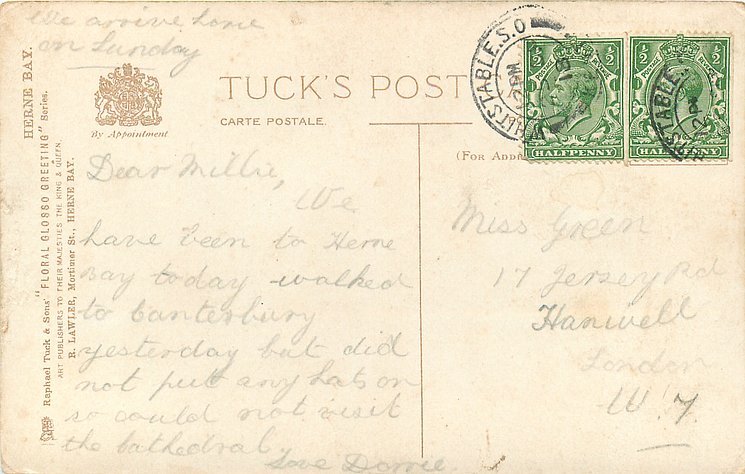 We arrive home
on Sunday
HERNE BAY.
Raphael Tuck & Sons' "FLORAL GLOSSO GREETING" Series.
ART PUBLISHERS TO THEIR MAJESTIES THE KING & QUEEN.
R. LAWLER, Mortimer St., HERNE BAY.
By Appointment
TUCK'S POST
CARTE POSTALE.
(For Addr
WHITSTABLE.S.O
½ ½
POSTAGE REVENUE
HALFPENNY
½ ½
HALFPENNY
Dear Millie,
We
have been to Herne
Bay today walked
to Canterbury
yesterday but did
not put any hats on
so could not visit
the Cathedral
Love Dorrie
Miss Green
17 Jersey Rd
Hanwell
London
W 7